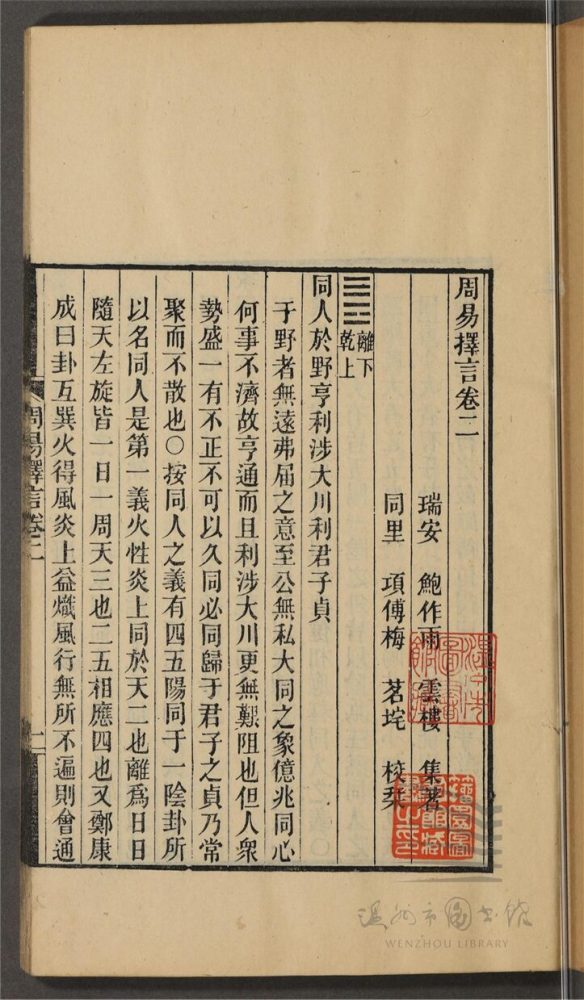 周易擇言卷二
瑞安 鮑作雨 雲樓 集著
同里 項傅梅 茗垞 校栞
離下
乾上
同人於野亨利涉大川利君子貞
于野者無遠弗屆之意至公無私大同之象億兆同心
何事不濟故亨通而且利涉大川更無艱阻也但人衆
勢盛一有不正不可以久同必同歸于君子之貞乃常
聚而不散也○按同人之義有四五陽同于一陰卦所
以名同人是第一義火性炎上同於天二也離爲日日
隨天左旋皆一日一周天三也二五相應四也又鄭康
成曰卦互巽火得風炎上益熾風行無所不遍則會通
周易擇言卷二
溫州市圖書館
WENZHOU LIBRARY